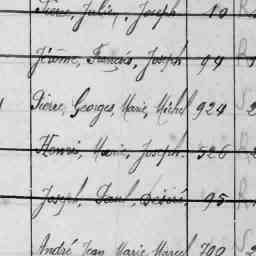 Pierre, Julien, Joseph 10
Jérôme, François, Joseph 94
Pierre, Georges, Marie, Michel 924
Henri, Marie, Joseph. 526
Joseph, Paul, Désiré, 95
André Jean Marie Marcel 790